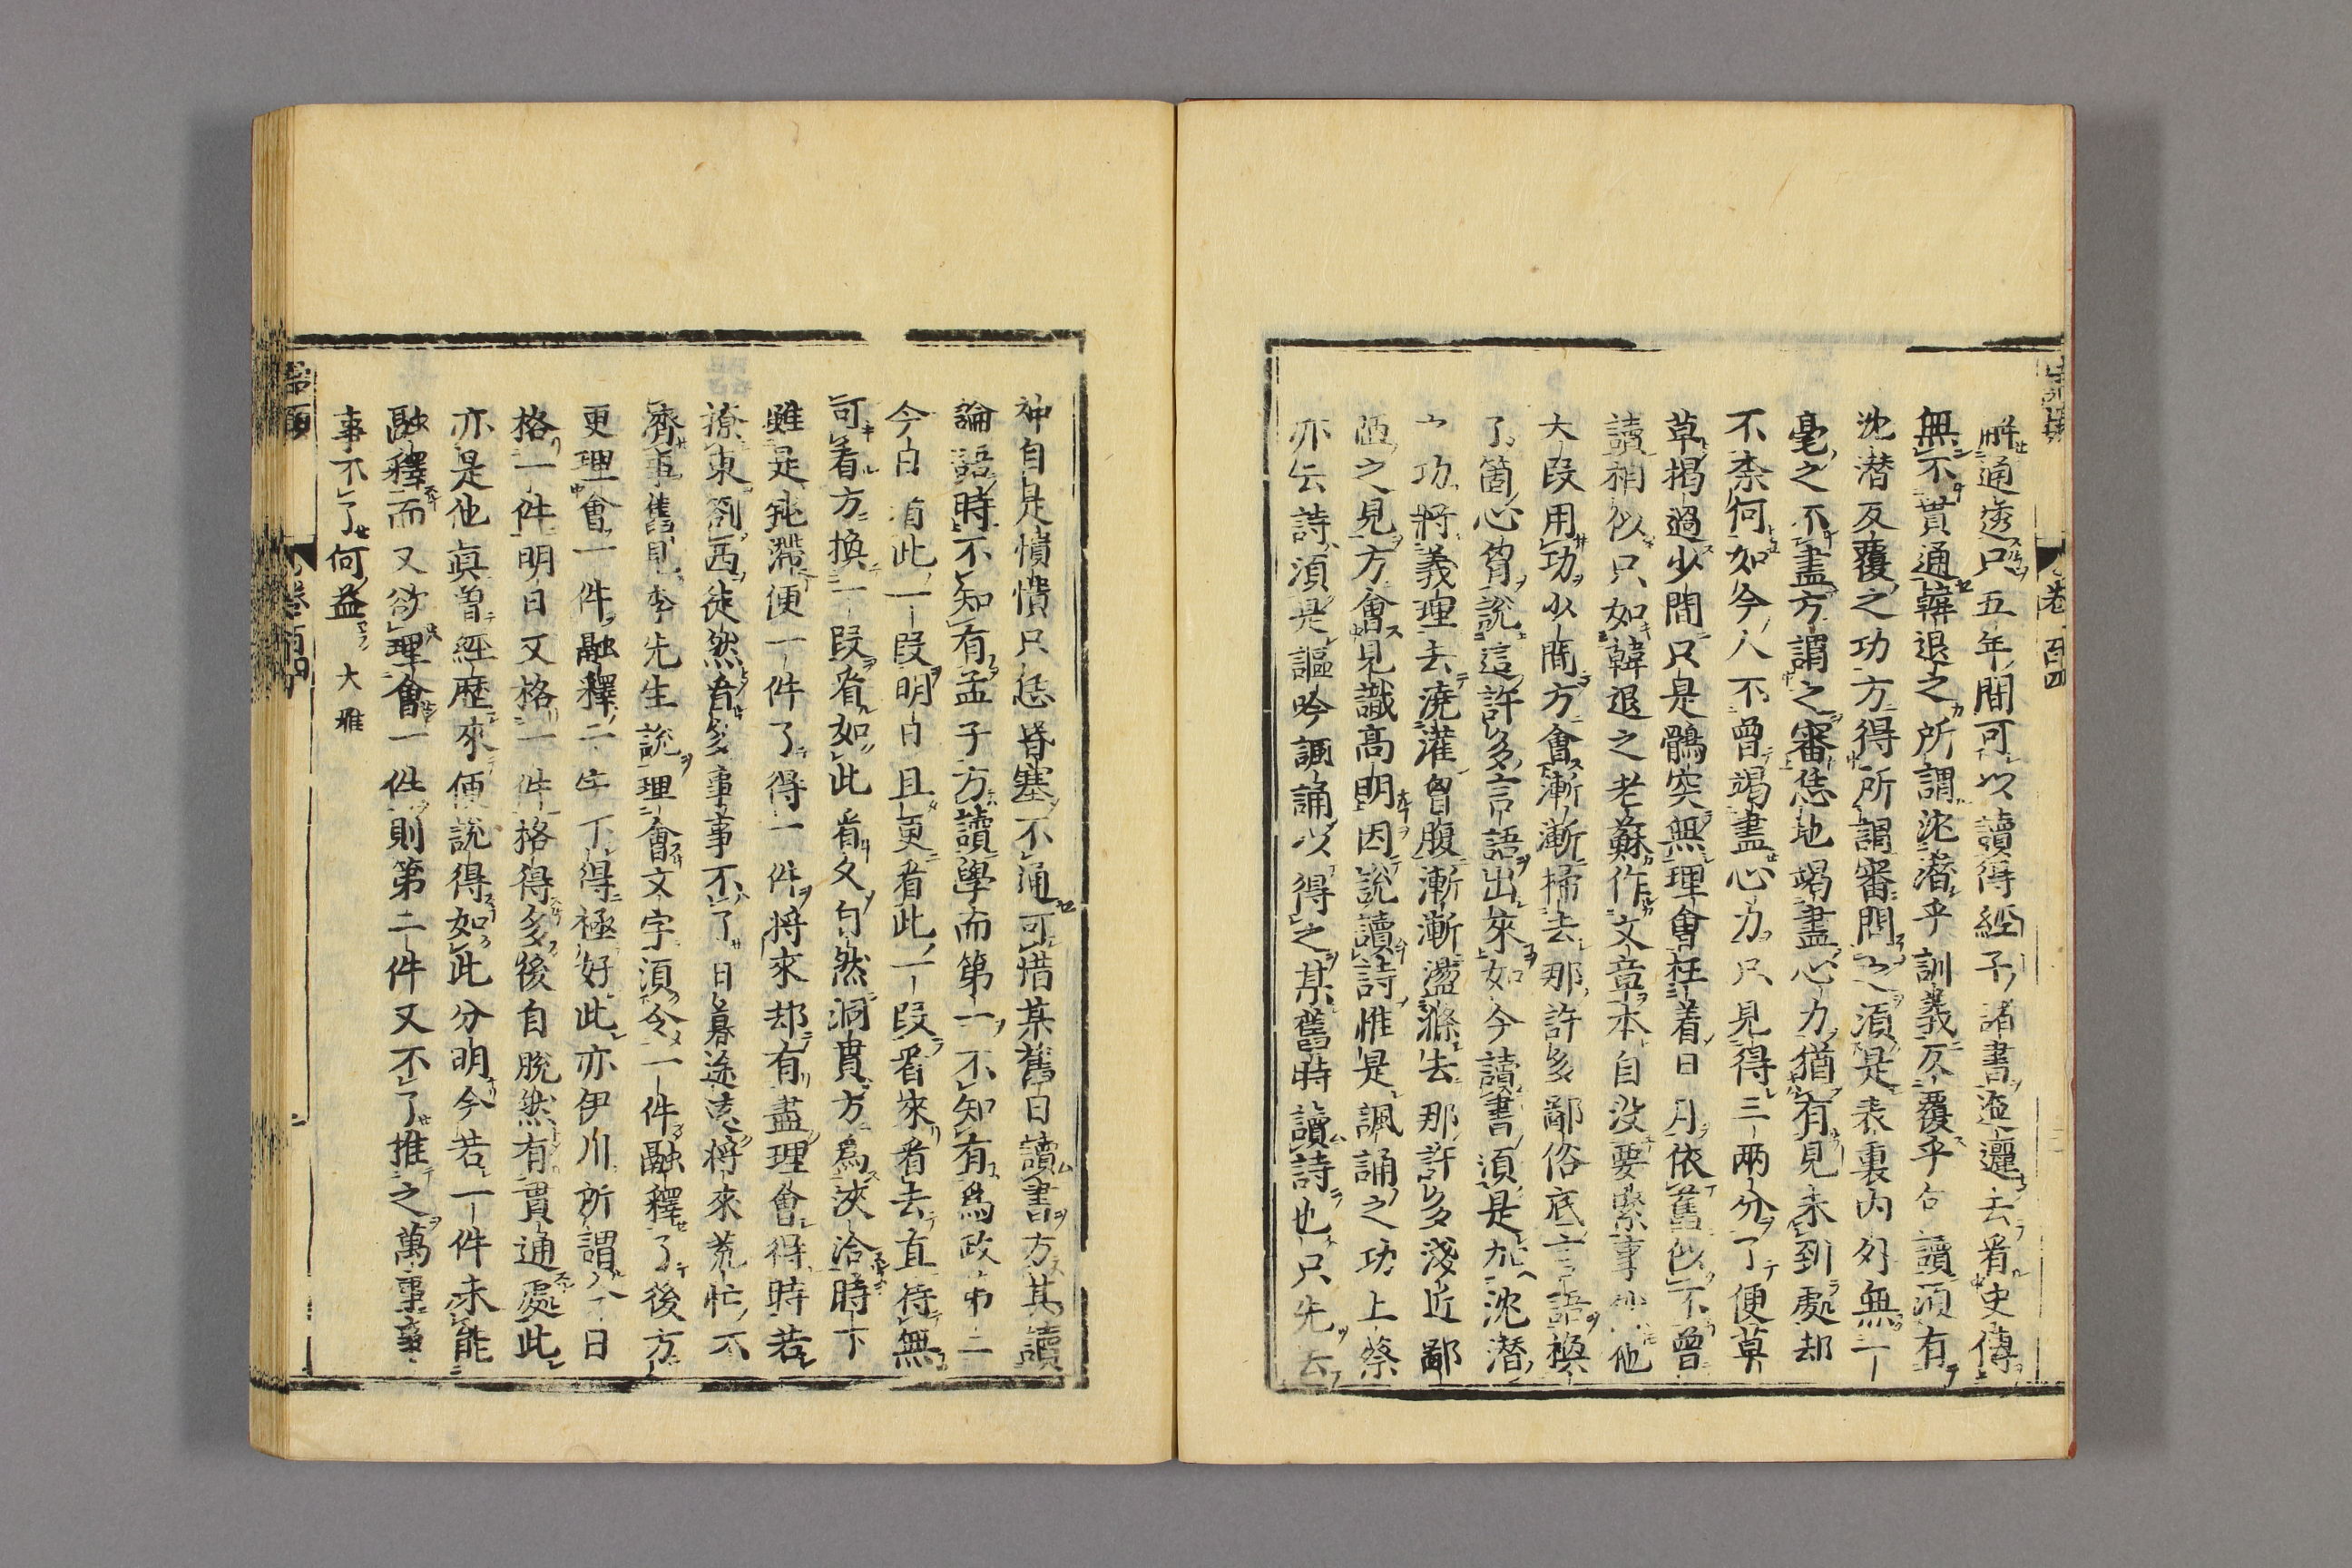 解通透只五年間可以讀得經子諸書迤邐去看史傳
無不貫通韓退之所謂沈潜乎訓義反覆乎句讀須有
沈潜反覆之功方得所謂審問之須是表裏內外無一
毫之不盡方謂之審恁地竭盡心力猶有見未到處却
不柰何如今人不曾竭盡心力只見得三兩分了便草
草揭過少間只是鶻突無理會枉着日月依舊似不曾
讀相似只如韓退之老蘇作文章本自沒要緊事然他
大段用功少間方會漸漸掃去那許多鄙俗底言語換
了箇心胷說這許多言語出來如今讀書須是加沈潜
之功將義理去澆灌胷腹漸漸盪滌去那許多淺近鄙
陋之見方會見識高明因說讀詩惟是諷誦之功上蔡
亦云詩須是謳吟諷誦以得之某舊時讀詩也只先去
卷一百四
神自是憒憒只恁昏塞不通可惜某舊日讀書方其讀
論語時不知有孟子方讀學而第一不知有爲政第二
今日看此一段明日且更看此一段看來看去直待無
可看方換一段看如此看久自然洞貫方爲浹洽時下
雖是鈍滯便一件了得一件將來却有盡理會得時若
撩東劄西徒然看多事事不了日暮途遠將來荒忙不
濟事舊見李先生說理會文字須令一件融釋了後方
更理會一件融釋二字下得極好此亦伊川所謂今日
格一件明日又格一件格得多後自脫然有貫通處此
亦是他眞曾經歷來便說得如此分明今若一件未能
融釋而又欲理會一件則第二件又不了推之萬事事
事不了何益 大雅